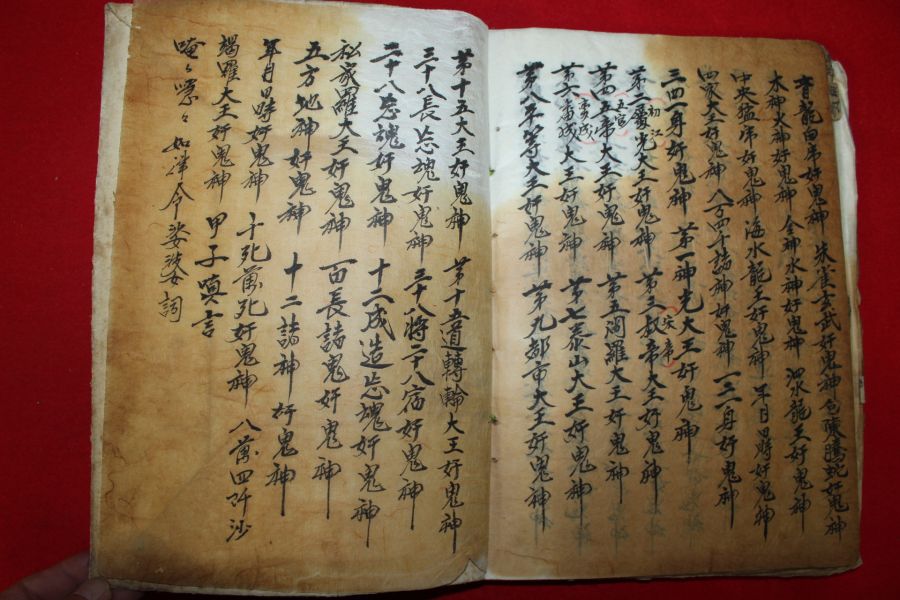 青龍白帝奸鬼神 朱雀玄武奸鬼神 句陳騰蛇奸鬼神
水神火神奸鬼神 金神水神奸鬼神 四水龍王奸鬼神
中央猛帝奸鬼神 海水龍王奸鬼神 年月日時奸鬼神
四家大王奸鬼神 八万四千諸神奸鬼神 一二身奸鬼神
三四一身奸鬼神 第一神光大王奸鬼神
第二 光大王奸鬼神 第三叔帝大王奸鬼神
初江 宋帝
第四五帝大王奸鬼神 第五閻羅大王奸鬼神
五官
第六 大王奸鬼神 第七泰山大王奸鬼神
第八平等大王奸鬼神 第九都市大王奸鬼神
第十五大王奸鬼神 第十五道轉輪大王奸鬼神
三十八長 魂奸鬼神 三十八將二十八宿奸鬼神
二十八 魂奸鬼神 十二成造 魂奸鬼神
私家羅大王奸鬼神 百長諸鬼奸鬼神
五方地神奸鬼神 十二諸神奸鬼神
年月日時奸鬼神 十死萬死奸鬼神 八萬四千沙
竭羅大王奸鬼神 甲子真言
唵 如律令娑婆詞